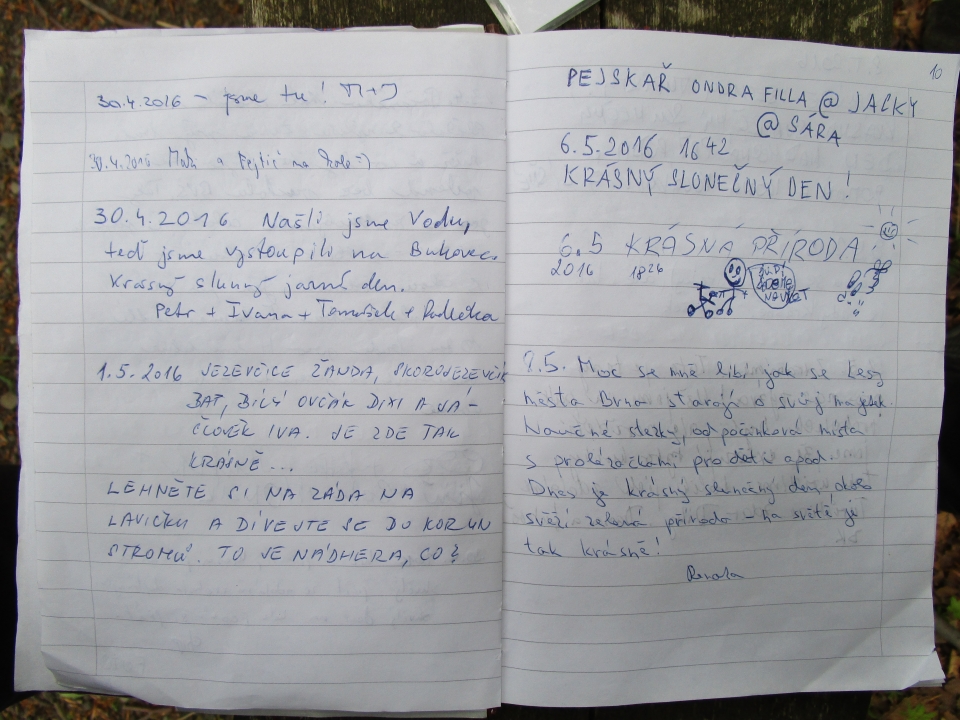 30.4.2016 – jsme tu! M+J
30.4.2016 na kole =)
30.4.2016 Našli jsme Vodu,
teď jsme vystoupili na Bukovec.
Krásný slunný jarní den.
Petr + Ivana + Tomášek +
1.5.2016 JEZEVČICE ŽANDA, SKOROJEZEVČÍK
BAT, BÍLÝ OVČÁK DIXI A JÁ-
ČLOVĚK IVA. JE ZDE TAK
KRÁSNĚ...
LEHNĚTE SI NA ZÁDA NA
LAVIČKU A DÍVEJTE SE DO KORUN
STROMŮ. TO JE NÁDHERA, CO?
10
PEJSKAŘ ONDRA FILLA @ JACKY
@ SÁRA
6.5.2016 1642
KRÁSNÝ SLONEČNÝ DEN!
6.5 KRÁSNÁ PŘÍRODA
2016 1826
7.5. Moc se mně líbí jak se Lesy
města Brna starají o svůj majetek.
Naučné stezky, odpočinková místa
s prolézačkami pro děti apod.
Dnes je krásný slunečný den okolo
svěží zelená příroda – na světě je
tak krásně!
Renata